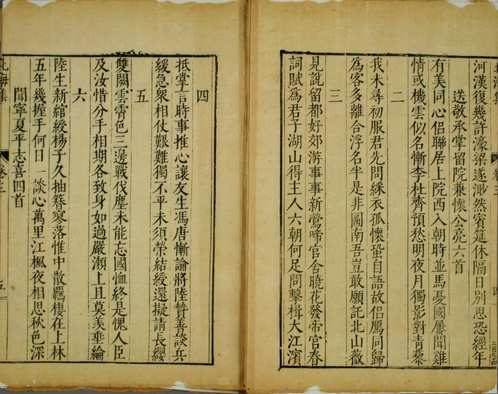 河漢復幾許濠梁遂渺然賓筵休隔日別恩恐經年
送敬承掌留院兼懷公亮六首
有美同心侶聯居上院西入朝時並馬憂國屢聞雞
情或機雲似名慚李杜齊預愁明夜月獨影對青藜
二
我未尋初服君先問綵衣孤懷蛩自語故侶鴈同歸
為客多離合浮名半是非圖南吾豈敢願託北山薇
三
見說留都好郊游事事新鶯啼官舍曉花發帝官春
詞賦為君子湖山得主人六朝何足問擊楫大江濱
四
抵掌言時事推心讓友生馮唐慚論將陸贄善談兵
緩急衆相仗艱難獨不平未須榮結綬還擬請長纓
五
雙闕雲霄色三邊戰伐塵未能忘國恤終是愧人臣
及汝惜分手相期各致身如過嚴瀨上且莫羨垂綸
六
陸生新綰綬楊子久抽簪寥落惟中散羈棲在上林
五年幾握手何日一談心萬里江楓夜相思秋色深
聞寧夏平志喜四首
卷三
五